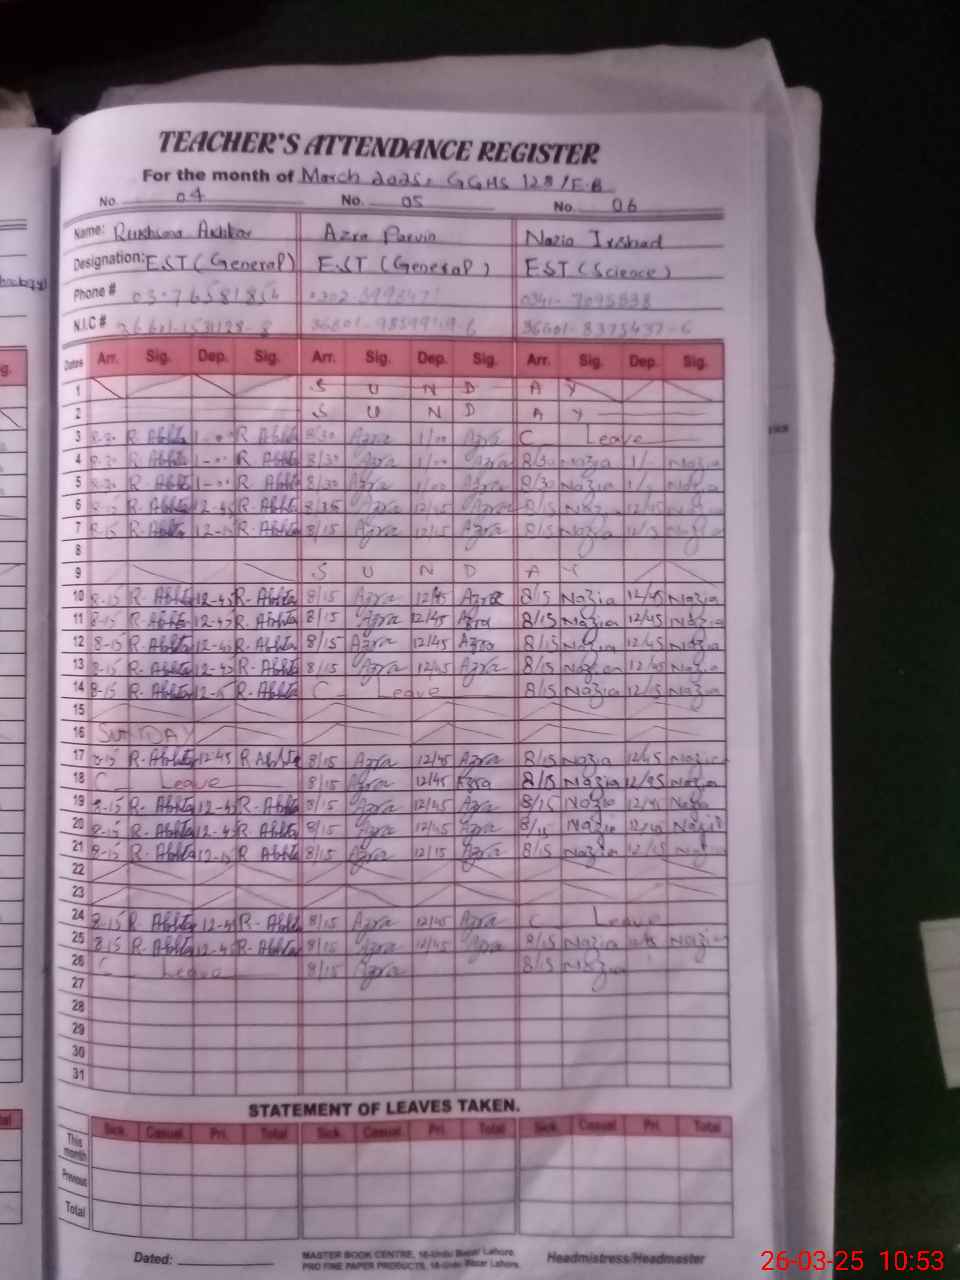 TEACHER'S ATTENDANCE REGISTER
For the month of March 2025, GGHS 128/E.B
No. 04 No. 05 No. 06
Name: Rukhsana Akhtar Azra Parvin Nazia Irshad
Designation: EST (General) EST (General) EST (Science)
Phone #
N.I.C #
Dates Arr. Sig. Dep. Sig. Arr. Sig. Dep. Sig. Arr. Sig. Dep. Sig.
1 S U N D A Y
2 S U N D A Y
3 8-30 R. Akhta 1-00 R Akhta 8/30 Azra 1/00 Azra C Leave
4 8-30 R. Akhta 1-00 R Akhta 8/30 Azra 1/00 Azra 8/30 Nazia 1/- Nazia
5 8-30 R. Akhta 1-00 R Akhta 8/30 Azra 1/00 Azra 8/30 Nazia Nazia
6 8-15 R. Akhta 12-45 R Akhta Azra 12/45 Azra 8/15 Nazia 12/45 Nazia
7 8-15 R- Akhta R- Akhta 8/15 Azra 12/15 Azra 8/15 Nazia 12/15 Nazia
8
9 S U N D A Y
10 8-15 R- Akhta 12-45 R- Akhta 8/15 Azra 12/45 Azra 8/15 Nazia 12/45 Nazia
11 8-15 R- Akhta 12-45 R- Akhta 8/15 Azra 12/45 Azra 8/15 Nazia 12/45 Nazia
12 8-15 R- Akhta 12-45 R- Akhta 8/15 Azra 12/45 Azra 8/15 Nazia 12/45 Nazia
13 8-15 R- Akhta 12-45 R- Akhta 8/15 Azra 12/45 Azra 8/15 Nazia 12/45 Nazia
14 8-15 R- Akhta 12-15 R- Akhta C Leave 8/15 Nazia 12/15 Nazia
15
16 SUNDAY
17 8-15 R- Akhta 12-45 R Akhta 8/15 Azra 12/45 Azra 8/15 Nazia 12/45 Nazia
18 C Leave 8/15 Azra 12/45 Azra 8/15 Nazia 12/45 Nazia
19 8-15 R- Akhta 12-45 R- Akhta 8/15 Azra 12/45 Azra 8/15 Nazia 12/45 Nazia
20 8-15 R- Akhta 12-45 R- Akhta 8/15 Azra 12/45 Azra 8/15 Nazia 12/45 Nazia
21 8-15 R- Akhta 12-15 R Akhta 8/15 Azra 12/15 Azra 8/15 Nazia 12/15 Nazia
22
23
24 8-15 R- Akhta 12-45 R- Akhta 8/15 Azra 12/45 Azra C Leave
25 8-15 R- Akhta 12-45 R- Akhta 8/15 Azra 12/45 Azra 8/15 Nazia Nazia
26 C Leave 8/15 Azra 8/15 Nazia
27
28
29
30
31
STATEMENT OF LEAVES TAKEN.
Sick Casual Pri. Total Sick Casual Pri. Total Sick Casual Pri. Total
This month
Previous
Total
Dated: MASTER BOOK CENTRE, 16-Urdu Bazar Lahore. Headmistress/Headmaster
PRO FINE PAPER PRODUCTS, 16-Urdu Bazar Lahore.
26-03-25 10:53